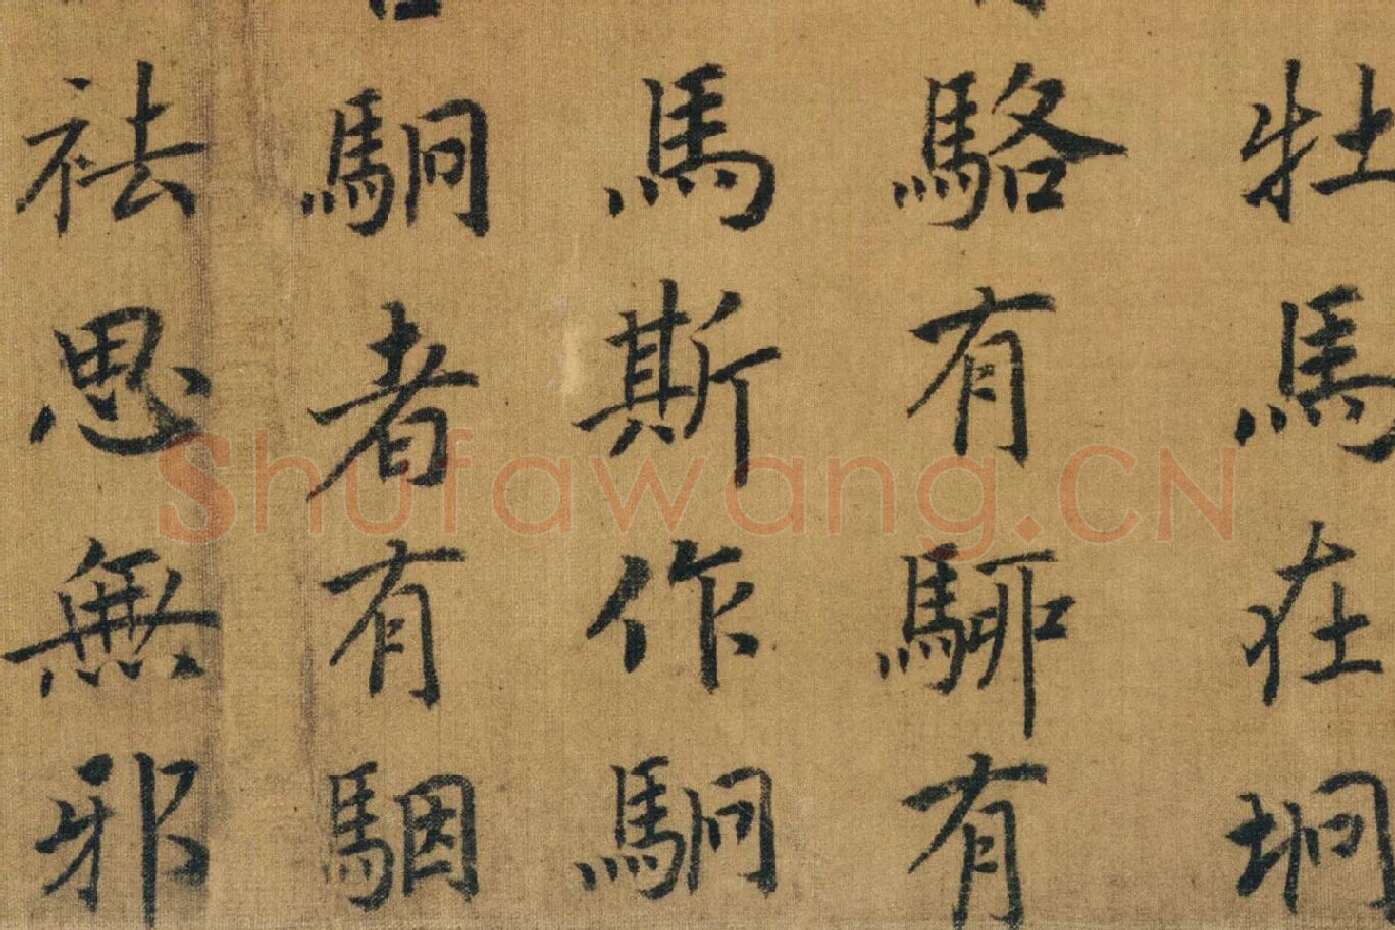 牡馬在坰
駱有駵有
馬斯作駉
駉者有駰
祛思無邪
Shufawang.CN